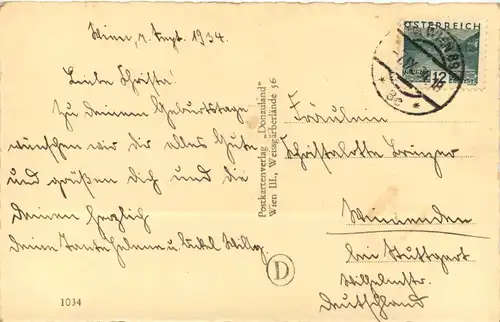 Wien, 7. Sept. 1934.
Liebe Christa!
Zu Deinem Geburtstage
wünschen wir dir alles Gute
und grüßen Dich und die
Deinen herzlich
Deine Tante Helene u. Onkel Willy.
1034
Postkartenverlag „Donauland"
Wien III., Weissgärberlände 56
D
ÖSTERREICH
12
WIEN 89
Fräulein
Christalotte
Winnenden
bei Stuttgart
Wilhelmstr.
Deutschland